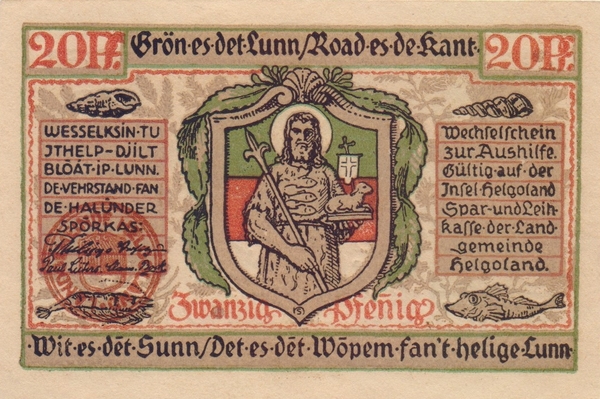 20Pf.
Grön·es·det·Lunn/Road·es·de·Kant·
20Pf.
WESSELKSIN·TU
JTHELP-DJILT
BLÖÁT·IP·LUNN.
DE·VEHRSTAND·FAN
DE·HALÜNDER
SPÓRKAS:
Wechselschein
zur Aushilfe.
Gültig·auf·der
Insel·Helgoland
Spar-und Leih-
kasse·der·Land-
gemeinde
Helgoland.
Zwanzig Pfeñig
·Wit·es·dēt·Sunn/Det·es·dēt·Wōpem·fan't·helige·Lunn·